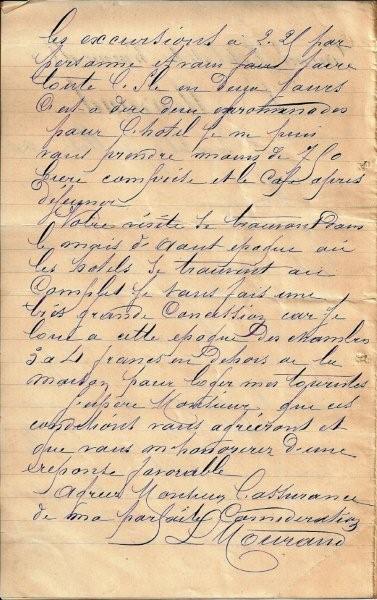 les excursions à 2.25 par
personne et vous faire faire
toute l'Ile en deux jours
C'est a dire deux promenades
pour l'hotel je ne peux
vous prendre moins de 7.50
biere comprise et le Cafe apres
déjeuner
Votre visite se trouvant dans
le mois d'Aout epoque où
les hotels se trouvent au
Complet je vous fais une
très grande Concession car je
loue a cette epoque Des chambres
3 a 4 francs en dehors de la
maison pour loger mes touristes
J'espère Monsieur que ces
conditions vous agréeront et
que vous m'honorerez d'une
réponse favorable
Agréez Monsieur l'assurance
de ma parfaite Consideration